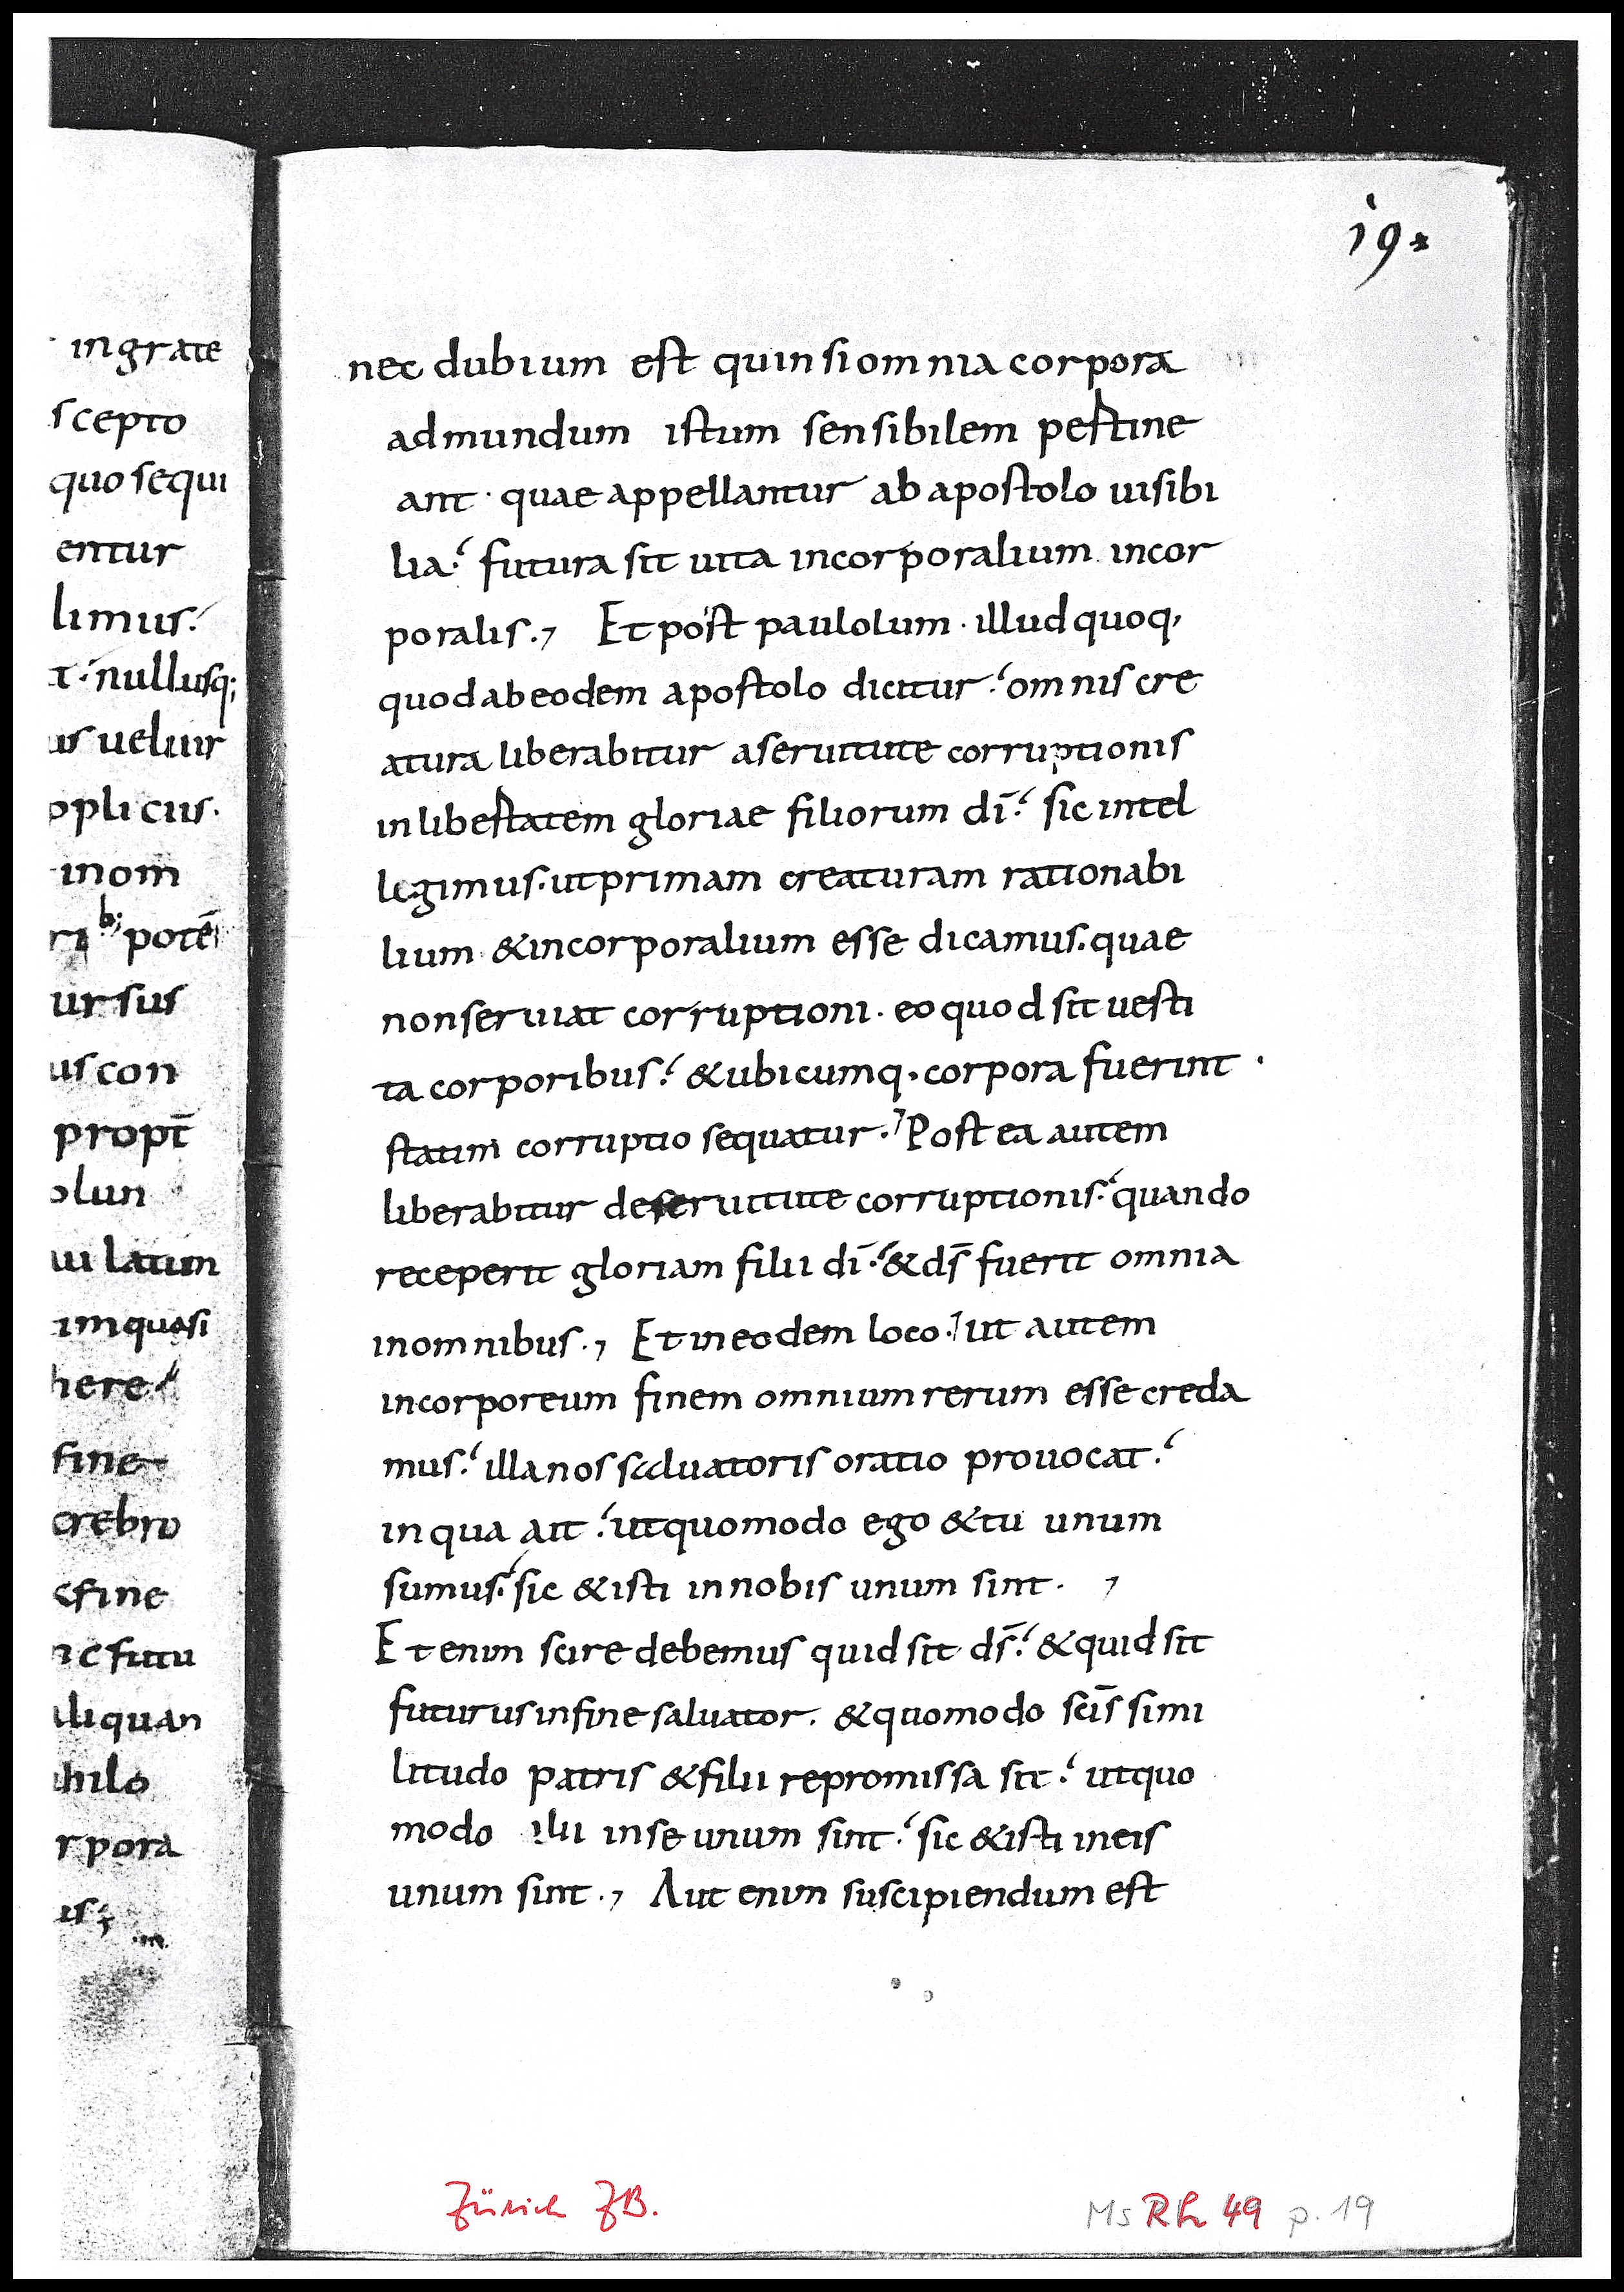 19
ingrate
scepto
quo sequi
entur
limus.
t. nullusq;
us uelur
oplicus.
inom
potē
ursus
us con
propt̄
olun
ui latum
im quasi
here
fine
crebro
c fine
nc futu
aliquan
ihilo
rpora
is;
nec dubium est quin si omnia corpora
ad mundum istum sensibilem pertine
ant · quae appellantur ab apostolo uisibi
lia: futura sit uita incorporalium incor
poralis., Et post paululum · illud quoq,
quod ab eodem apostolo dicitur: omnis cre
atura liberabitur a seruitute corruptionis
in libertatem gloriae filiorum dī: sic intel
legimus. ut primam creaturam rationabi
lium & incorporalium esse dicamus. quae
non seruiat corruptioni · eo quod sit uesti
ta corporibus: & ubicumq. corpora fuerint ·
statim corruptio sequatur. Post ea autem
liberabitur de seruitute corruptionis: quando
receperit gloriam filii dī: & ds̄ fuerit omnia
in omnibus., Et in eodem loco. ut autem
incorporeum finem omnium rerum esse creda
mus: illa nos saluatoris oratio prouocat:
in qua ait: ut quomodo ego & tu unum
sumus: sic & isti in nobis unum sint. ,
Et enim scire debemus quid sit ds̄: & quid sit
futurus in fine saluator. & quomodo scīs simi
litudo patris & filii repromissa sit: ut quo
modo illi in se unum sint: sic & isti in eis
unum sint., Aut enim suscipiendum est
Zürich ZB.
Ms Rh 49 p. 19